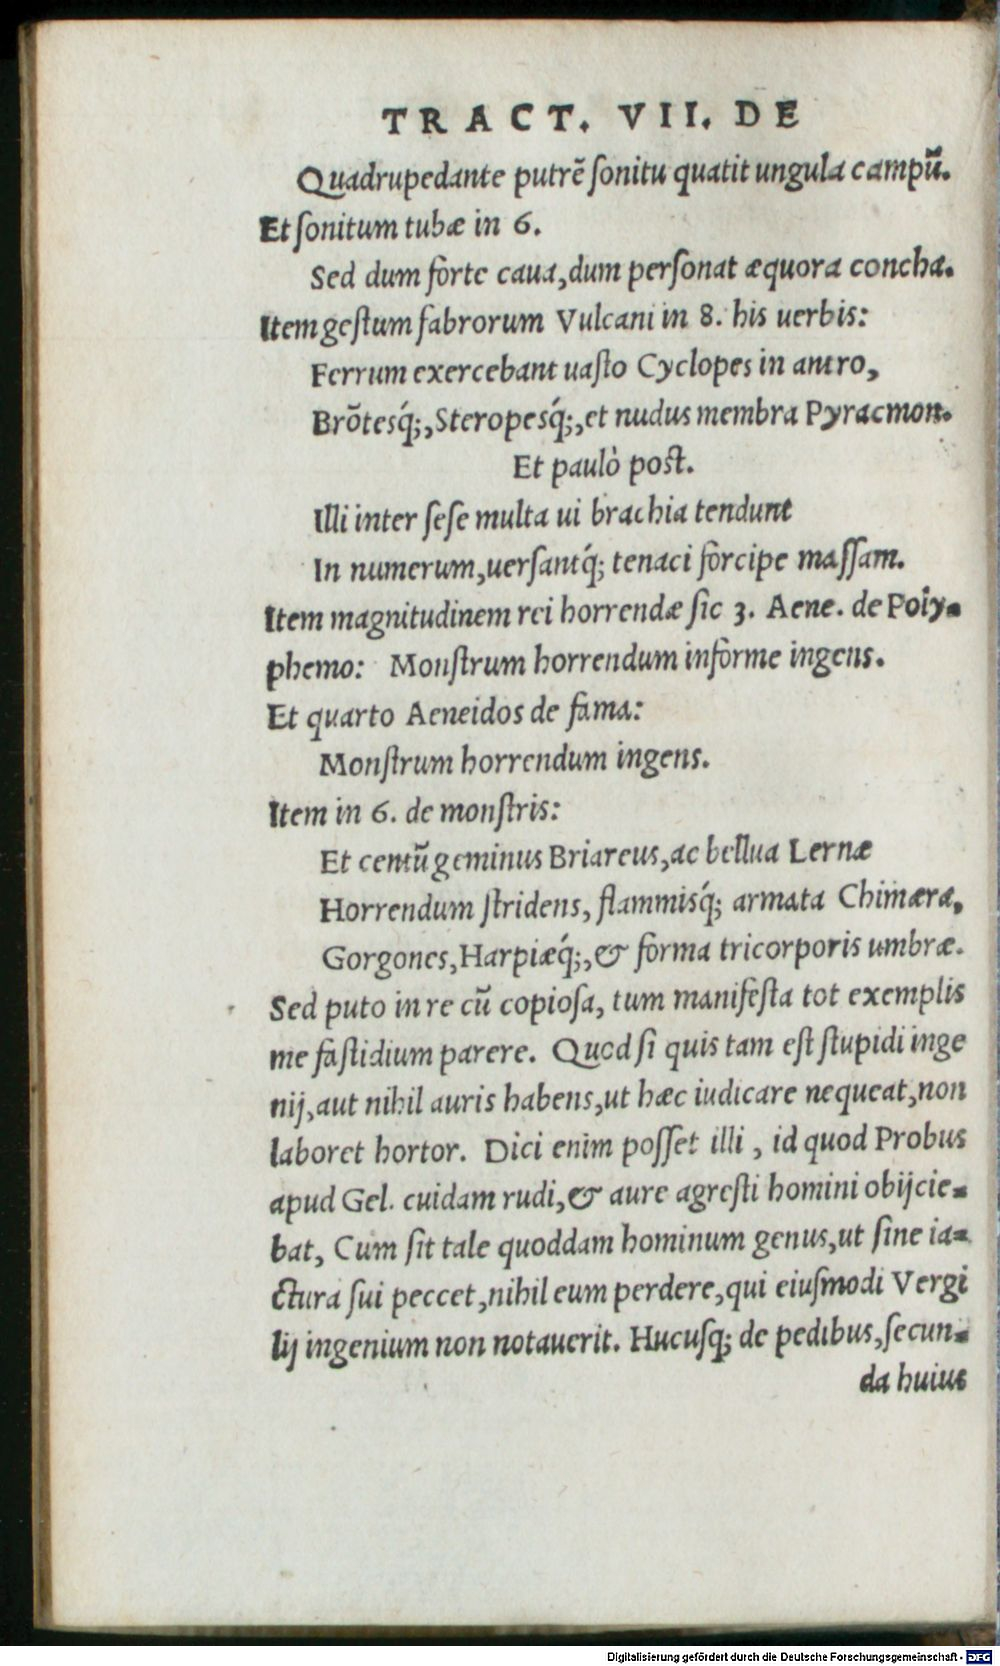 TRACT. VII. DE
Quadrupedante putrẽ ſonitu quatit ungula campũ.
Et ſonitum tubæ in 6.
Sed dum forte caua, dum perſonat æquora concha.
Item geſtum fabrorum Vulcani in 8. his uerbis:
Ferrum exercebant uaſto Cyclopes in antro,
Brõtesq́;, Steropesq́;, et nudus membra Pyracmon.
Et paulò poſt.
Illi inter ſeſe multa ui brachia tendunt
In numerum, uerſantq́; tenaci forcipe maſſam.
Item magnitudinem rei horrendæ ſic 3. Aene. de Poly-
phemo: Monſtrum horrendum informe ingens.
Et quarto Aeneidos de fama:
Monſtrum horrendum ingens.
Item in 6. de monſtris:
Et centũgeminus Briareus, ac bellua Lernæ
Horrendum ſtridens, flammisq́; armata Chimæra,
Gorgones, Harpiæq́;, & forma tricorporis umbræ.
Sed puto in re cũ copioſa, tum manifeſta tot exemplis
me faſtidium parere. Quod ſi quis tam eſt ſtupidi inge
nij, aut nihil auris habens, ut hæc iudicare nequeat, non
laboret hortor. Dici enim poſſet illi, id quod Probus
apud Gel. cuidam rudi, & aure agreſti homini obijcie-
bat, Cum ſit tale quoddam hominum genus, ut ſine ia-
ctura ſui peccet, nihil eum perdere, qui eiuſmodi Vergi
lij ingenium non notauerit. Hucuſq; de pedibus, ſecun-
da huius
Digitalisierung gefördert durch die Deutsche Forschungsgemeinschaft - DFG